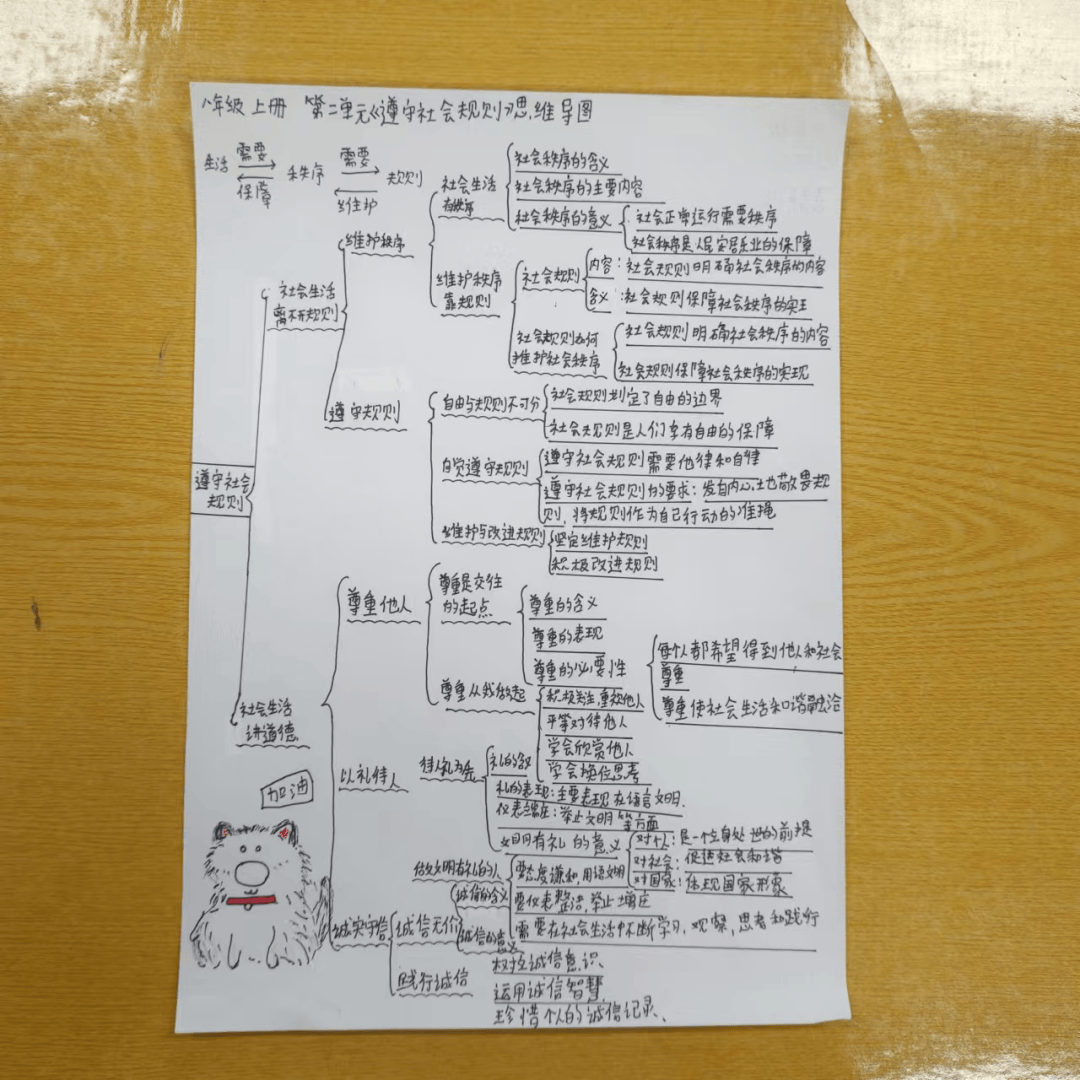 八年级上册 第二单元《遵守社会规则》思维导图
生活 需要 保障 秩序 需要 维护 规则
遵守社会规则
社会生活离不开规则
维护秩序
社会生活有秩序
社会秩序的含义
社会秩序的主要内容
社会秩序的意义
社会正常运行需要秩序
社会秩序是人民安居乐业的保障
维护秩序靠规则
社会规则
内容：社会规则明确社会秩序的内容
含义：社会规则保障社会秩序的实王
社会规则如何维护社会秩序
社会规则明确社会秩序的内容
社会规则保障社会秩序的实现
遵守规则
自由与规则不可分
社会规则划定了自由的边界
社会规则是人们享有自由的保障
自觉遵守规则
遵守社会规则需要他律和自律
遵守社会规则的要求：发自内心地敬畏规
则，将规则作为自己行动的准绳
维护与改进规则
坚定维护规则
积极改进规则
社会生活讲道德
尊重他人
尊重是交往的起点
尊重的含义
尊重的表现
尊重的必要性
每个人都希望得到他人和社会
尊重
尊重使社会生活和谐融洽
尊重从我做起
积极关注，重视他人
平等对待他人
学会欣赏他人
学会换位思考
以礼待人
待人礼为先
礼的含义
礼的表现：主要表现在语言文明、
仪表端庄：举止文明等方面
文明有礼的意义
对个人：是一个立身处世的前提
对社会：促进社会和谐
对国家：体现国家形象
做文明有礼的人
要态度谦和，用语文明
要仪表整洁，举止端庄
需要在社会生活中不断学习，观察，思考和践行
诚实守信
诚信无价
诚信的含义
诚信的意义
践行诚信
树立诚信意识、
运用诚信智慧
珍惜个人的诚信记录、
加油